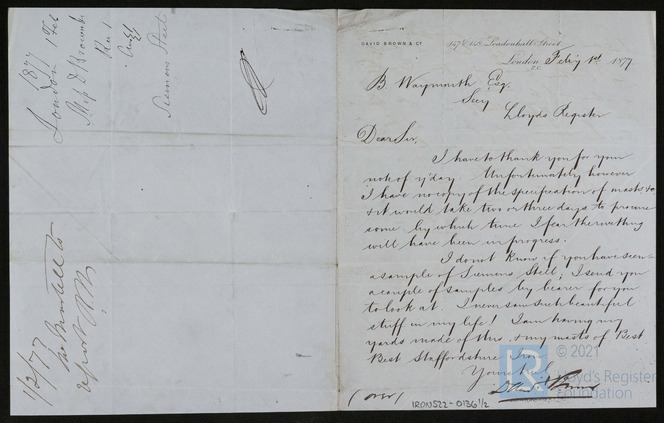 1877
London 1st Feb
Messrs D Brown &
Siemens Steel
1/2/77
DAVID BROWN & Co
147 & 148 Leadenhall Street
London Feby 1st 1877
E.C.
B. Waymouth Esq.
Secy
Lloyds Register
Dear Sir,
I have to thank you for your
note of y'day. Unfortunately however
I have no copy of the specification of masts &c
& it would take two or three days to procure
some by which time I fear the rivetting
will have been in progress.
I do not know if you have seen
a sample of Siemens Steel; I send you
a couple of samples by bearer for you
to look at. I never saw such beautiful
stuff in my life! I am having my
yards made of this & my masts of Best
Best Staffordshire Iron
Yours truly
David Brown
(over)
IRON522-0136 1/2
© 2021
Lloyd's Register
Foundation